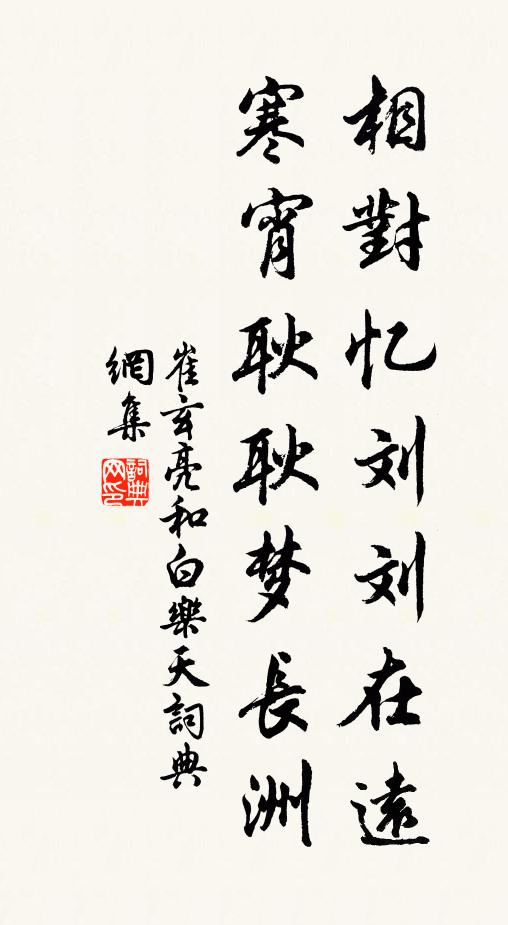 相對忆刘刘在遠
寒宵耿耿梦長洲
崔玄亮和白樂天詞典
網集
詞典網印